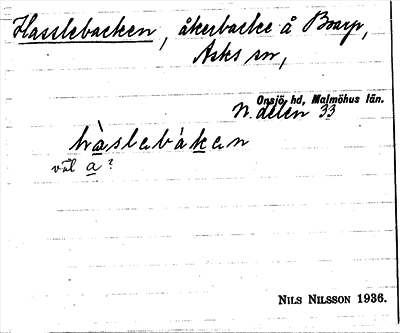 Hasslebacken, åkerbacke å Boarp,
Asks sn,
Onsjö hd, Malmöhus län.
N. delen 33
hàslabákan
väl a?
NILS NILSSON 1936.